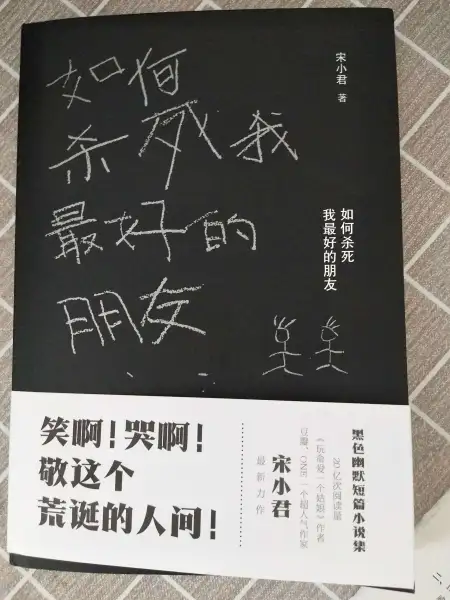 如何
杀死我
最好的
朋友
宋小君 著
如何杀死
我最好的朋友
笑啊！哭啊！
敬这个
荒诞的人间！
黑色幽默短篇小说集
20亿次阅读量
《玩命爱一个姑娘》作者
豆瓣、ONE·一个超人气作家
宋小君
最新力作